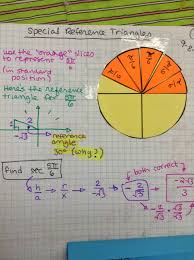 Special Reference Triangles
use the "orange" slices
to represent 5π/6
(in standard
position)
π/6 π/6 π/6 π/6 π/6
Here's the reference
triangle for 5π/6
2
1
-√3
reference
angle:
30° (why?)
find sec 5π/6
h/a → r/x → 2/-√3 → -2/√3
both correct
-2√3/3
-2/√3 · √3/√3